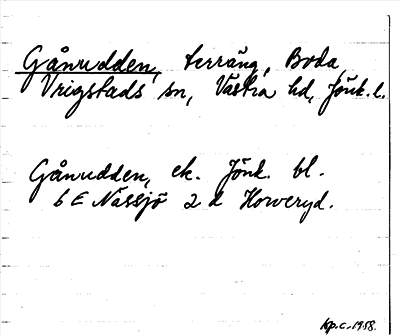 Gånudden, terräng, Boda
Vrigstads sn, Västra hd, Jönk. l.
Gånudden, ek. Jönk. bl.
6 E Nässjö 2 d Howeryd.
kp.c. 1958.